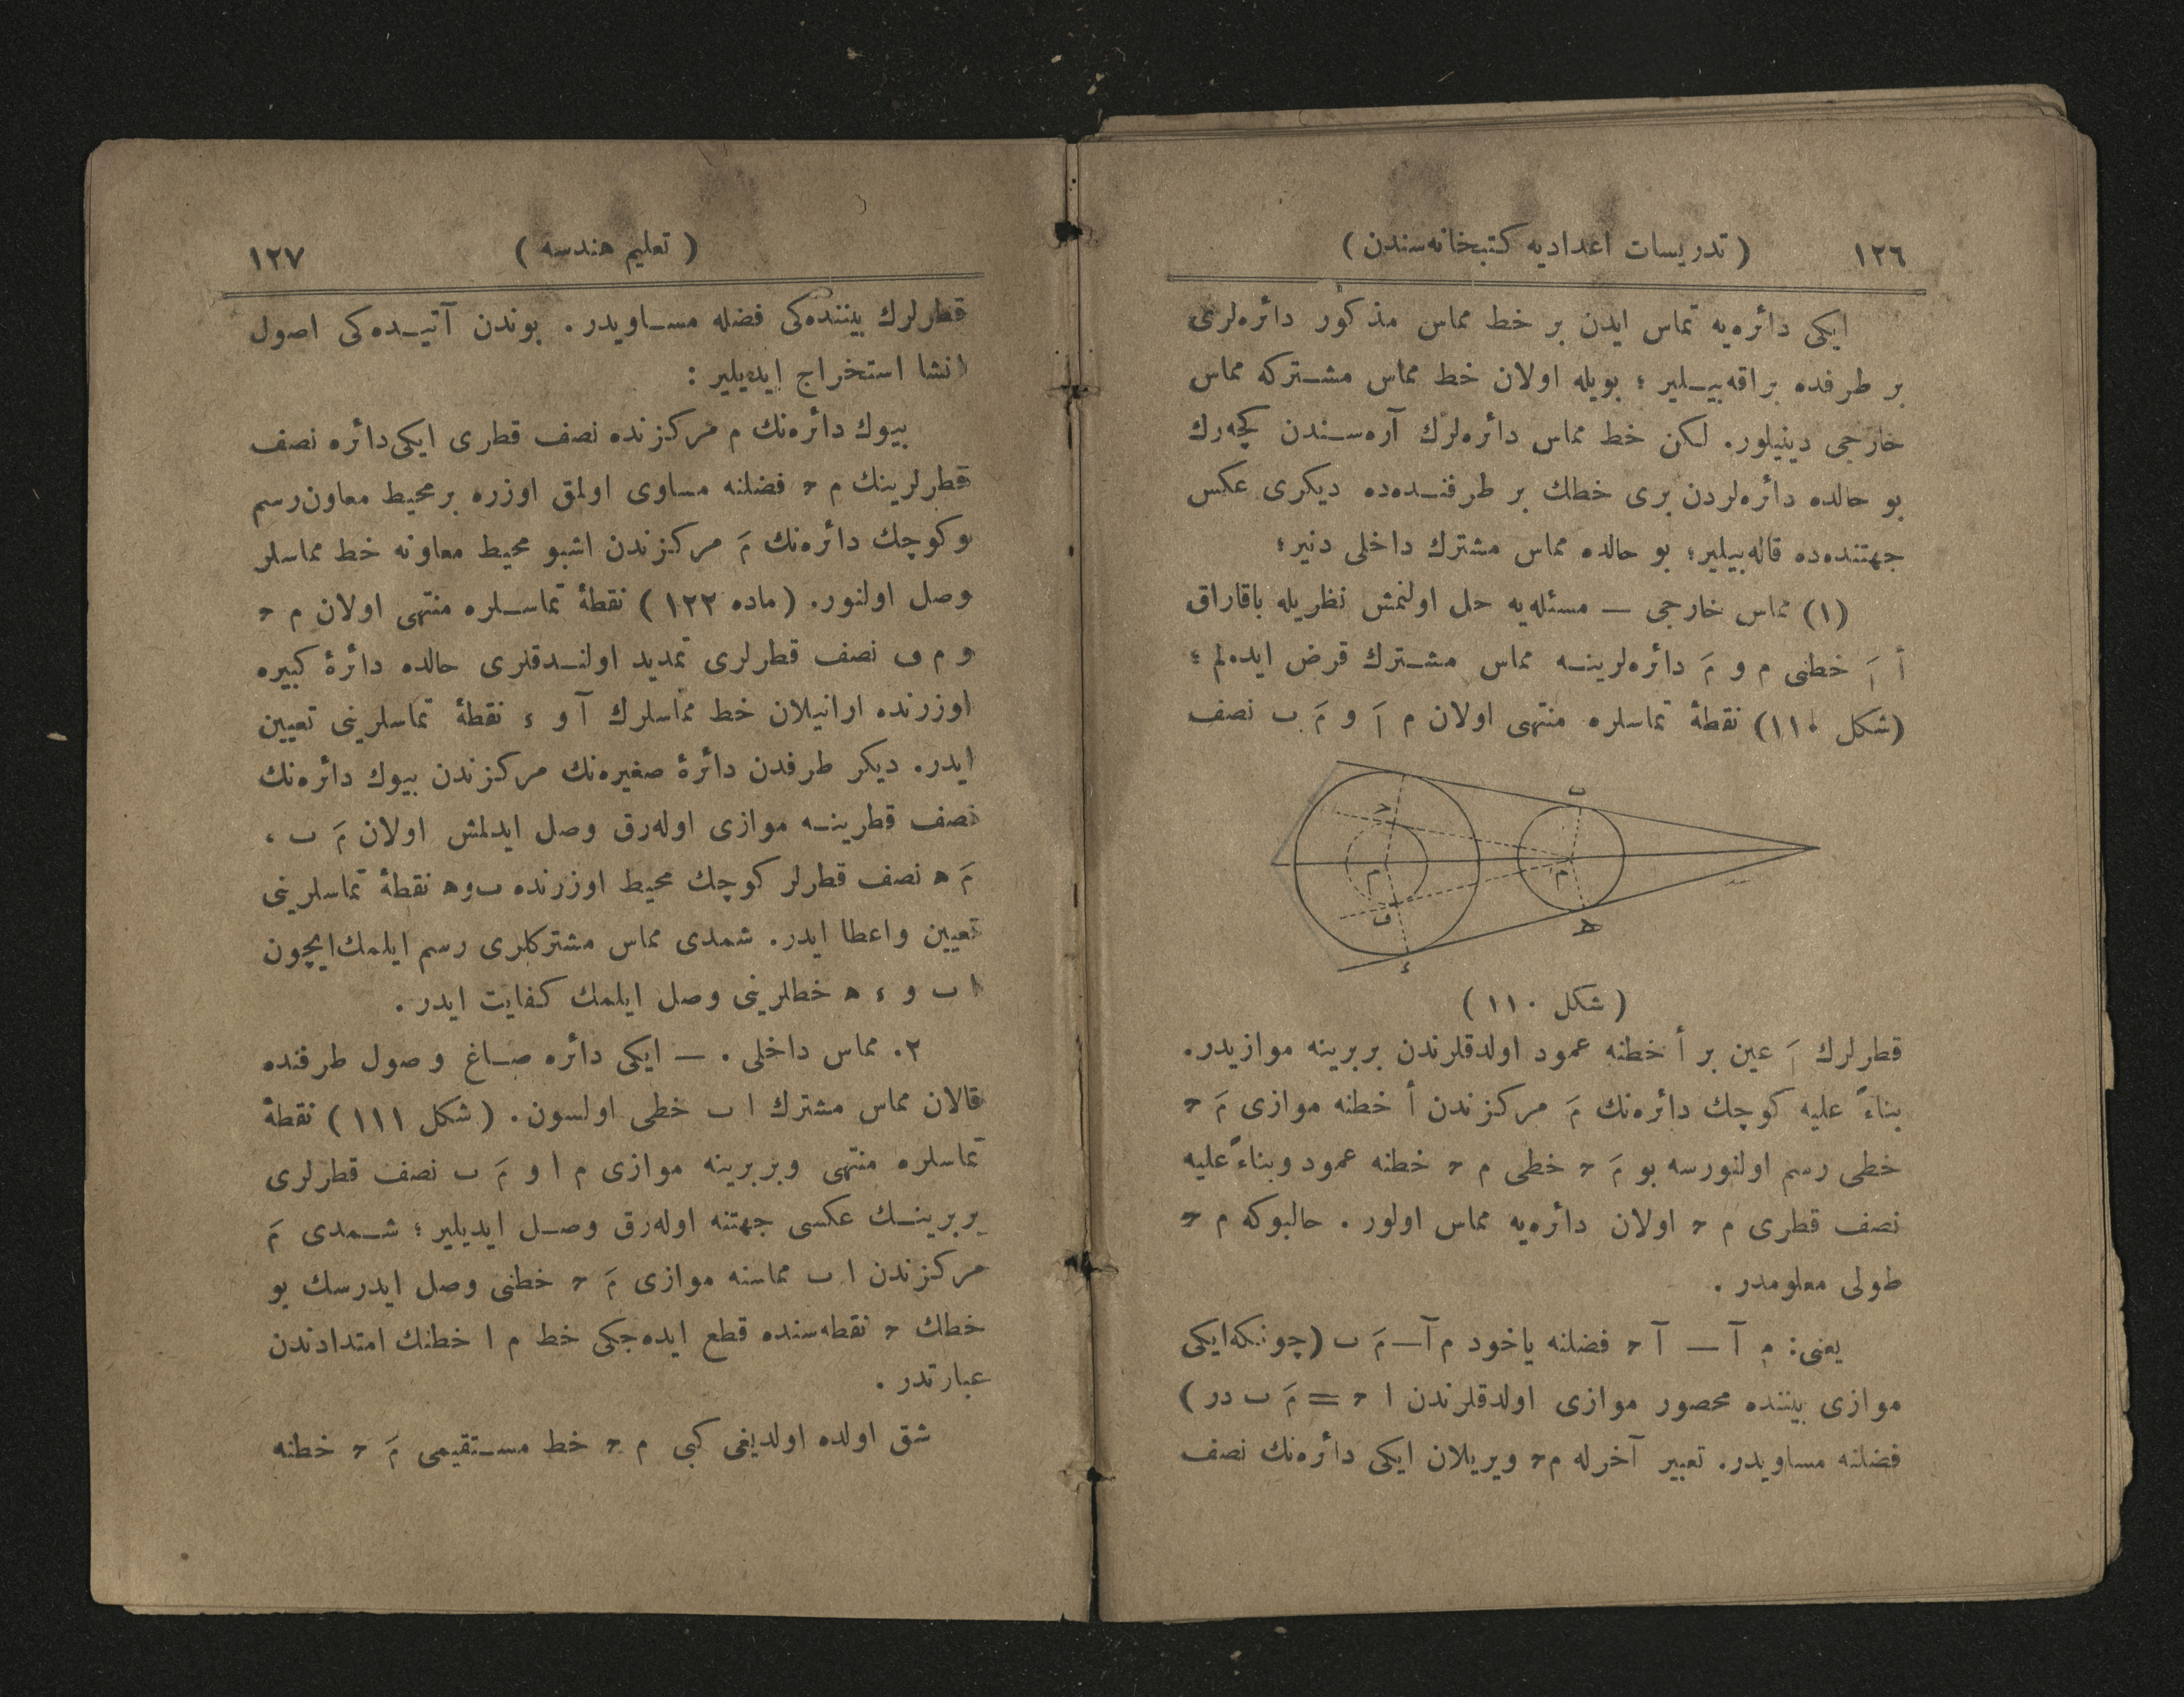 ١٢٦ ( تدريسات اعداديه كتبخانه‌سندن )
ايكى دائره‌يه تماس ايدن بر خط مماس مذكور دائره‌لرى
بر طرفده براقه‌بيلير ؛ بويله اولان خط مماس مشتركه مماس
خارجى دينيلور. لكن خط مماس دائره‌لرك آره‌سندن كچه‌رك
بو حالده دائره‌لردن برى خطك بر طرفنده‌ده ديكرى عكس
جهتنده‌ده قاله‌بيلير؛ بو حالده مماس مشترك داخلى دنير؛
(١) مماس خارجى — مسئله‌يه حل اولنمش نظريله باقاراق
أ أَ خطنى م و مَ دائره‌لرينه مماس مشترك فرض ايده‌لم ؛
(شكل ١١٠) نقطهٔ تماسلره منتهى اولان م أَ و مَ ب نصف
ب
ح
م
مَ
ف
ه
ء
( شكل ١١٠ )
قطرلرك أَ عين بر أ خطنه عمود اولدقلرندن بربرينه موازيدر.
بناءً عليه كوچك دائره‌نك مَ مركزندن أ خطنه موازى مَ ح
خطى رسم اولنورسه بو مَ ح خطى م ح خطنه عمود وبناءً عليه
نصف قطرى م ح اولان دائره‌يه مماس اولور . حالبوكه م ح
طولى معلومدر .
يعنى: م آ — آ ح فضلنه ياخود م آ — مَ ب (چونكه ايكى
موازى بيننده محصور موازى اولدقلرندن ا ح = مَ ب در )
فضلنه مساويدر. تعبير آخرله م ح ويريلان ايكى دائره‌نك نصف
( تعليم هندسه ) ١٢٧
قطرلرك بيننده‌كى فضله مساويدر . بوندن آتيده‌كى اصول
انشا استخراج ايديلير :
بيوك دائره‌نك م مركزنده نصف قطرى ايكى دائره نصف
قطرلرينك م ح فضلنه مساوى اولمق اوزره بر محيط معاون رسم
وكوچك دائره‌نك مَ مركزندن اشبو محيط معاونه خط مماسلر
وصل اولنور. (ماده ١٢٢) نقطهٔ تماسلره منتهى اولان م ح
و م ف نصف قطرلرى تمديد اولندقلرى حالده دائرهٔ كبيره
اوزرنده ارانيلان خط مماسلرك آ و ء نقطهٔ تماسلرينى تعيين
ايدر. ديكر طرفدن دائرهٔ صغيره‌نك مركزندن بيوك دائره‌نك
نصف قطرينه موازى اوله‌رق وصل ايدلمش اولان مَ ب ،
مَ ه نصف قطرلر كوچك محيط اوزرنده ب و ه نقطهٔ تماسلرينى
تعيين واعطا ايدر. شمدى مماس مشتركلرى رسم ايلمك ايچون
ا ب و ء ه خطلرينى وصل ايلمك كفايت ايدر .
٢. مماس داخلى . — ايكى دائره صاغ وصول طرفنده
قالان مماس مشترك ا ب خطى اولسون . (شكل ١١١) نقطهٔ
تماسلره منتهى وبربرينه موازى م ا و مَ ب نصف قطرلرى
بربرينك عكسى جهتنه اوله‌رق وصل ايديلير ؛ شمدى مَ
مركزندن ا ب مماسنه موازى مَ ح خطنى وصل ايدرسك بو
خطك ح نقطه‌سنده قطع ايده‌جكى خط م ا خطنك امتدادندن
عبارتدر .
شق اولده اولديغى كبى م ح خط مستقيمى مَ ح خطنه